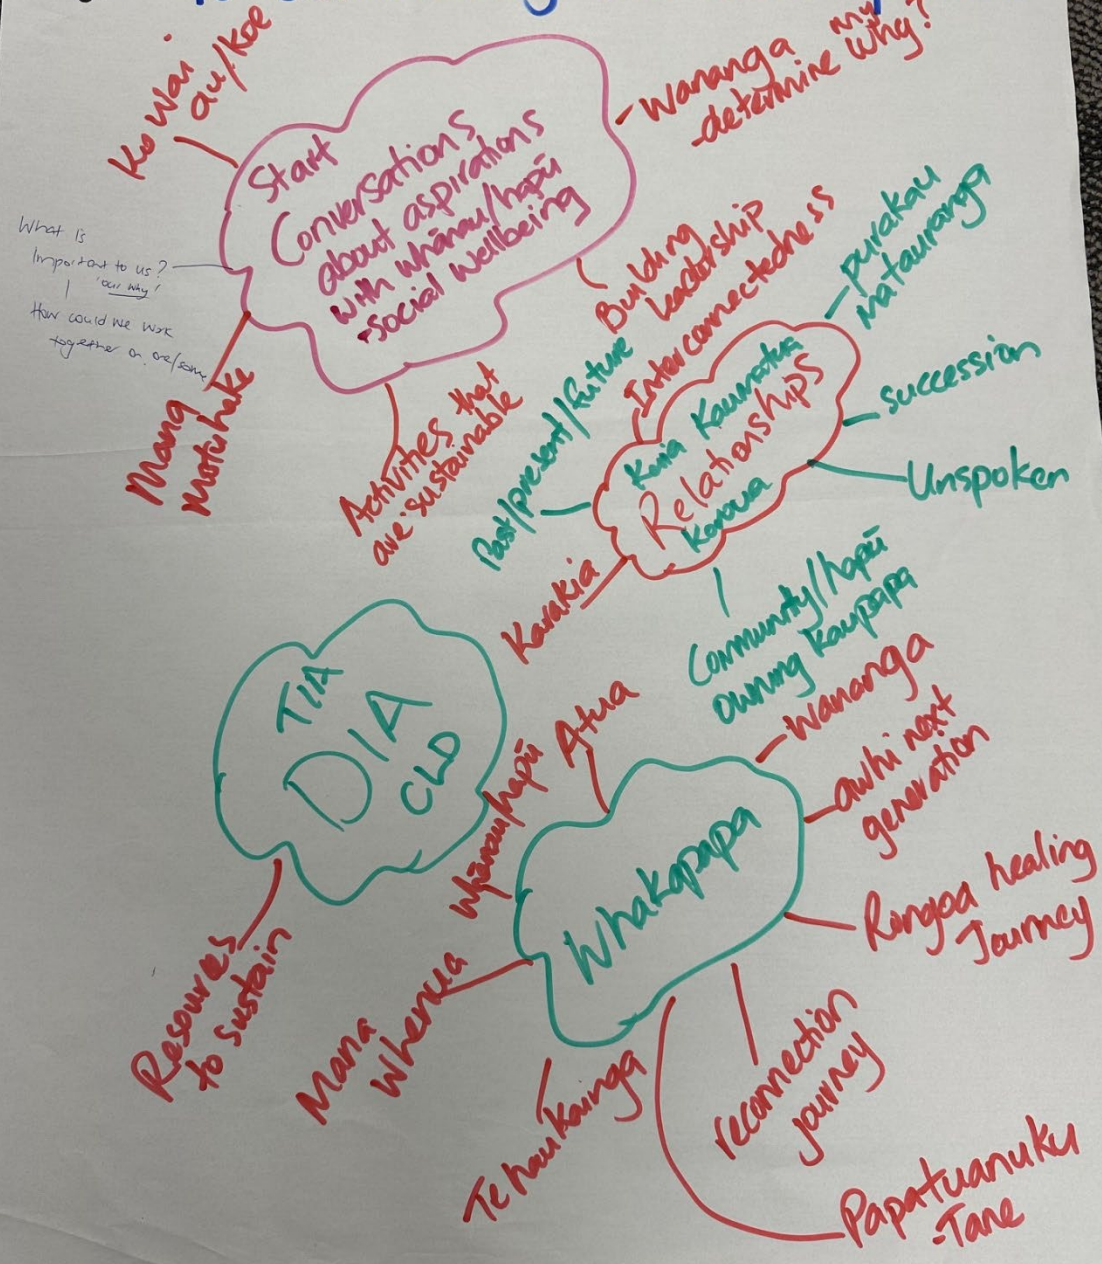 Ko wai
au/koe
Start
Conversations
about aspirations
with whānau/hapū
-social wellbeing
Wananga
-determine my
why?
What is
Important to us?
'our why'
How could we work
together on one/some
Mana
Motuhake
Activities that
are sustainable
Building
leadership
Interconnectedness
Past/present/future
Karakia
Kuia Kaumatua
Relationships
Koroua
purakau
Matauranga
Succession
Unspoken
Community/hapū
owning kaupapa
TIA
DIA
CLD
Resources
to sustain
Whakapapa
Atua
Whānau/hapū
Mana
Whenua
Te hau kainga
Wananga
awhi next
generation
Rongoa healing
Journey
reconnection
journey
Papatuanuku
-Tane